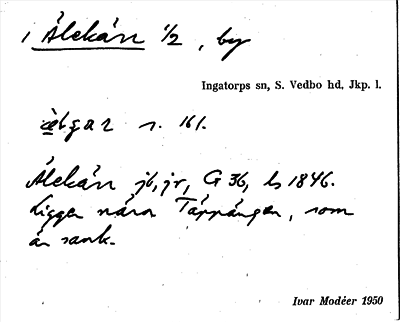 1 Ålekärr ½, by
Ingatorps sn, S. Vedbo hd, Jkp. l.
r. 161.
Ålekärr jb, jr, G 36, ls 1846.
Ligger nära Täppängen, som
är sank.
Ivar Modéer 1950